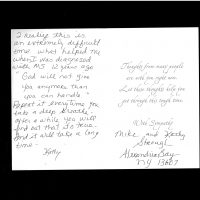 I realize this is
an extremely difficult
time. What helped me
when I was diagnosed
with MS 12 years ago
"God will not give
you anymore than
you can handle."
Repeat it everytime you
take a deep breath.
after a while you will
find out that is true
and it will take a long
time -
Kathy
Thoughts from many people
are with you right now.
Let these thoughts help you
get through this tough time.
With Sympathy
Mike and Kathy
Alexandria Bay
NY 13607